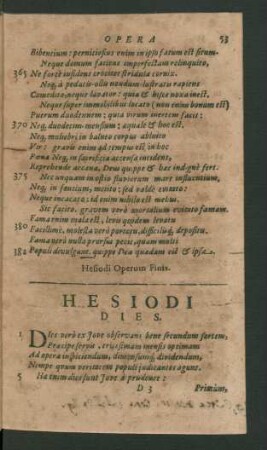 OPERA 53
Bibentium: perniciosus enim in ipsis fatum est situm.
Neque domum faciens imperfectam relinquito,
365 Ne forte insidens crocitet stridula cornix.
Neq, à pedatis ollis nondum lustratis rapiens
Comedito, neque lavator: quia & his noxa inest.
Neque super immobilibus locato (non enim bonum est)
Puerum duodennem: quia virum inertem facit:
370 Neq, duodecim mensium: æquale & hoc est.
Neq, muliebri in balneo corpus abluito
Vir: gravis enim ad tempus est in hoc
Pœna Neq, in sacrificia accensa incidens,
Reprehende arcana, Deus quippe & hæc indignè fert.
375 Nec unquam in ostio fluviorum mare influentium,
Neq, in fontium, meito: sed valde evitato:
Neque incacato: id enim nihilo est melius.
Sic facito. gravem verò mortalium evitato famam.
Fama enim mala est, levis quidem levatu
380 Facillimè, molesta verò portatu, difficilisq, depositu.
Fama verò nulla prorsus perit, quam multi
382 Populi divulgant. quippe Dea quædam est & ipsa.
Hesiodi Operum Finis.
HESIODI
DIES.
1 Dies verò ex Jove observans bene secundum sortem,
Præcipe servis, tricesimam mensis optimam
Ad opera inspiciendum, dimensumq, dividendum,
Nempe quum veritatem populi judicantes agunt.
5 Hæ enim dies sunt Jove à prudente:
D 3 Primùm,